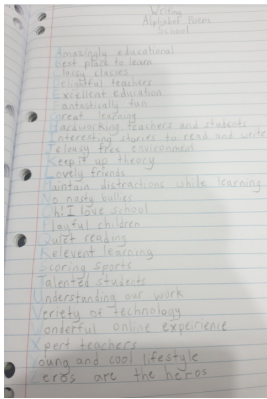 Writing
Alphabet Poem
School
Amazingly educational
Best place to learn
Classy classes
Delightful teachers
Excellent education
Fantastically fun
Great learning
Hardworking teachers and students
Interesting stories to read and write
Jelousy free environment
Keep it up theory
Lovely friends
Maintain distractions while learning
No nasty bullies
Oh! I love school
Playful children
Quiet reading
Relevent learning
Scoring sports
Talented students
Understanding our work
Veriety of technology
Wonderful online expeirience
Xpert teachers
Young and cool lifestyle
Zeros are the heros